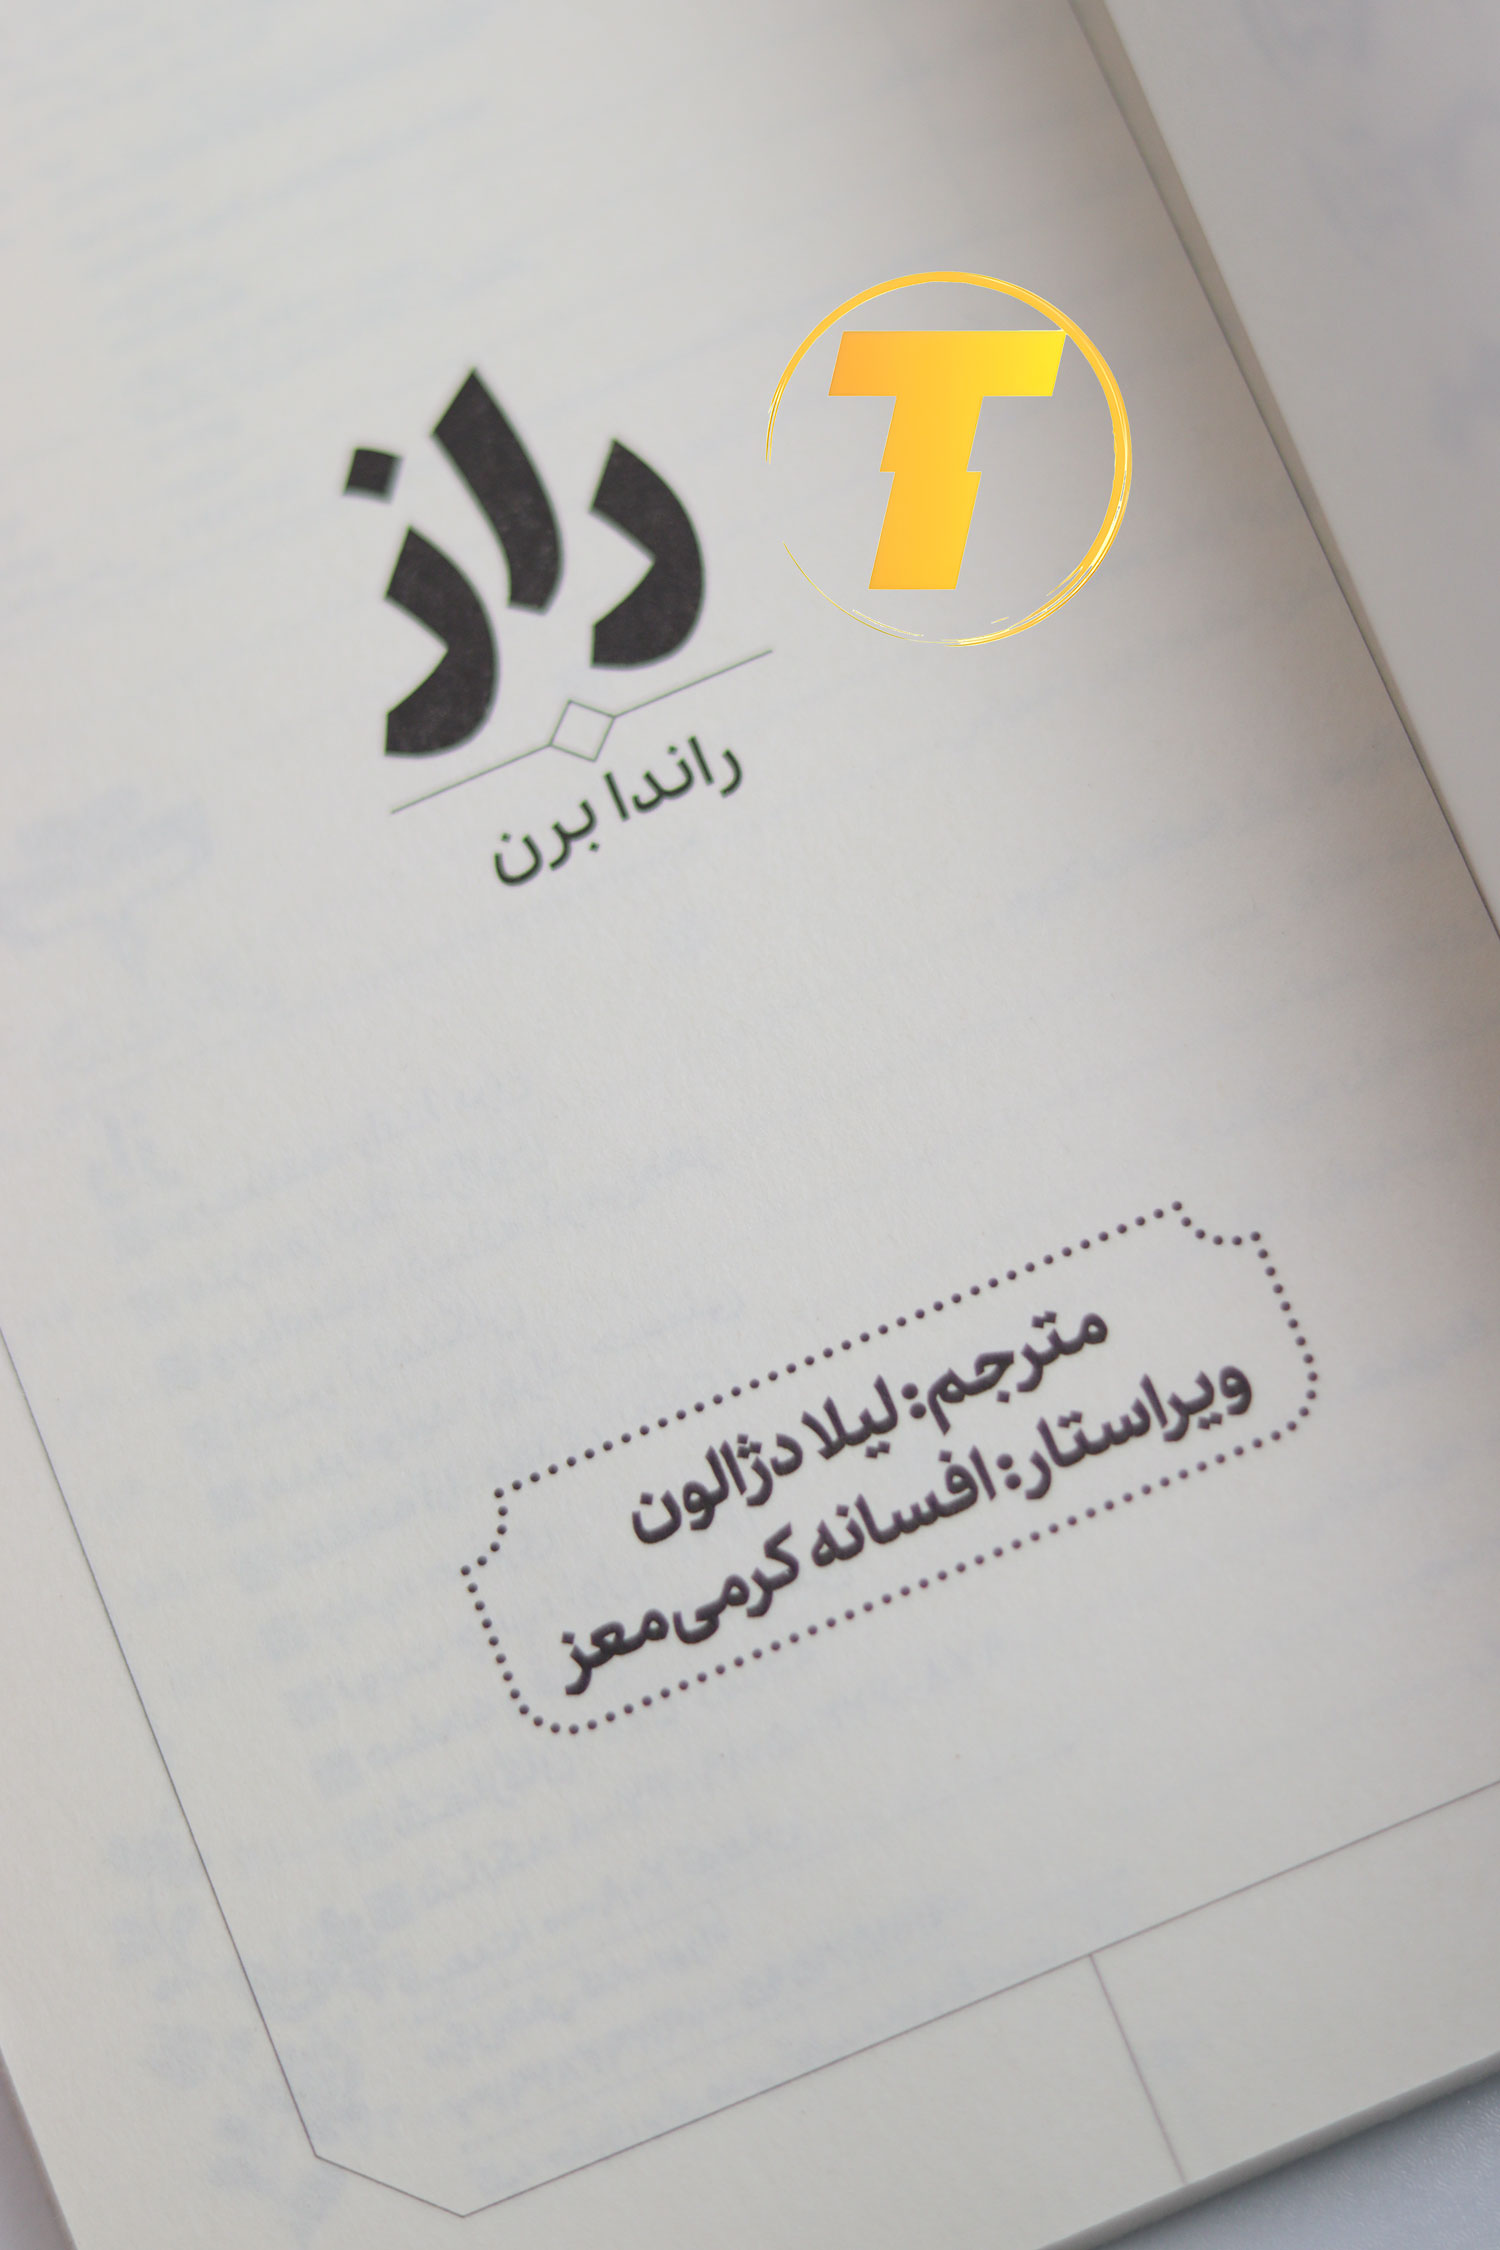 راز
راندا برن
مترجم: لیلا دژالون
ویراستار: افسانه کرمی‌معز
T